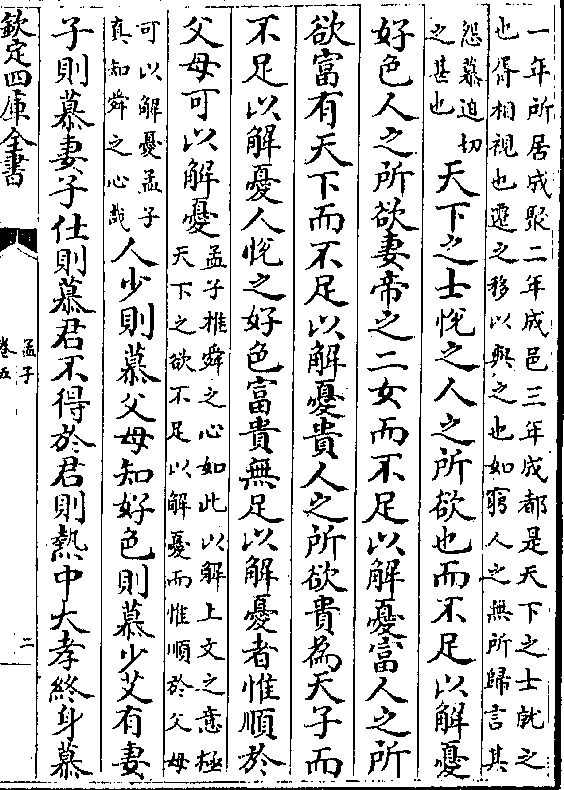 一年所居成聚二年成邑三年成都是天下之士就之
也胥相視也遷之移以與之也如窮人之無所歸言其
怨慕迫切
之甚也
天下之士悅之人之所欲也而不足以解憂
好色人之所欲妻帝之二女而不足以解憂富人之所
欲富有天下而不足以解憂貴人之所欲貴為天子而
不足以解憂人悅之好色富貴無足以解憂者惟順於
父母可以解憂
孟子推舜之心如此以解上文之意極
天下之欲不足以解憂而惟順於父母
可以解憂孟子
真知舜之心哉
人少則慕父母知好色則慕少艾有妻
子則慕妻子仕則慕君不得於君則熱中大孝終身慕
欽定四庫全書
孟子
卷五
二